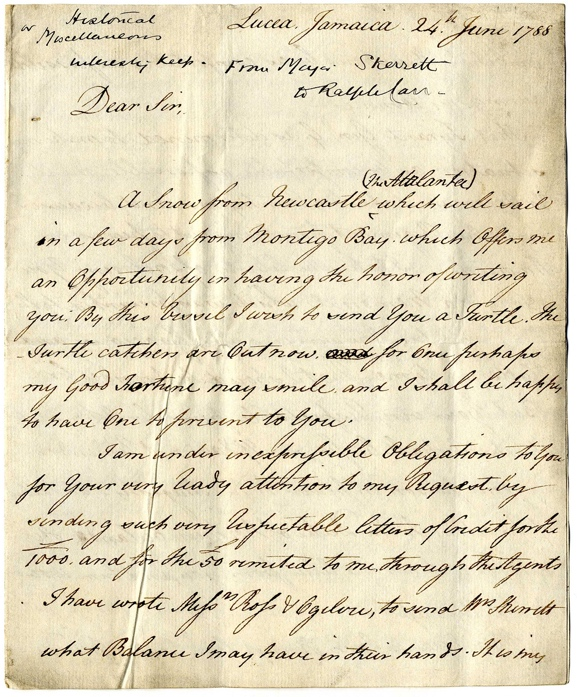 or Historical
Miscellaneous
interesting keep.
Lucea. Jamaica. 24th June 1788
From Major Skerrett
to Ralph Carr
Dear Sir,
(the Attalanta)
A Snow from Newcastle which will sail
in a few days from Montigo Bay. which Offers me
an Opportunity in having the honor of writing
you. By this Vessel I wish to send You a Turtle. The
Turtle catchers are Out now. for Once perhaps
my Good Fortune may smile and I shall be happy
to have One to present to You.
I am under inexpressible Obligations to You
for Your very ready attention to my Request. by
sending such very respectable letters of Credit for the
1000. and for the 50 remited to me, through the Agents
I have wrote Messrs Ross & Ogilvie, to send Mrs Skerrett
what Balance I may have in their hands. It is my